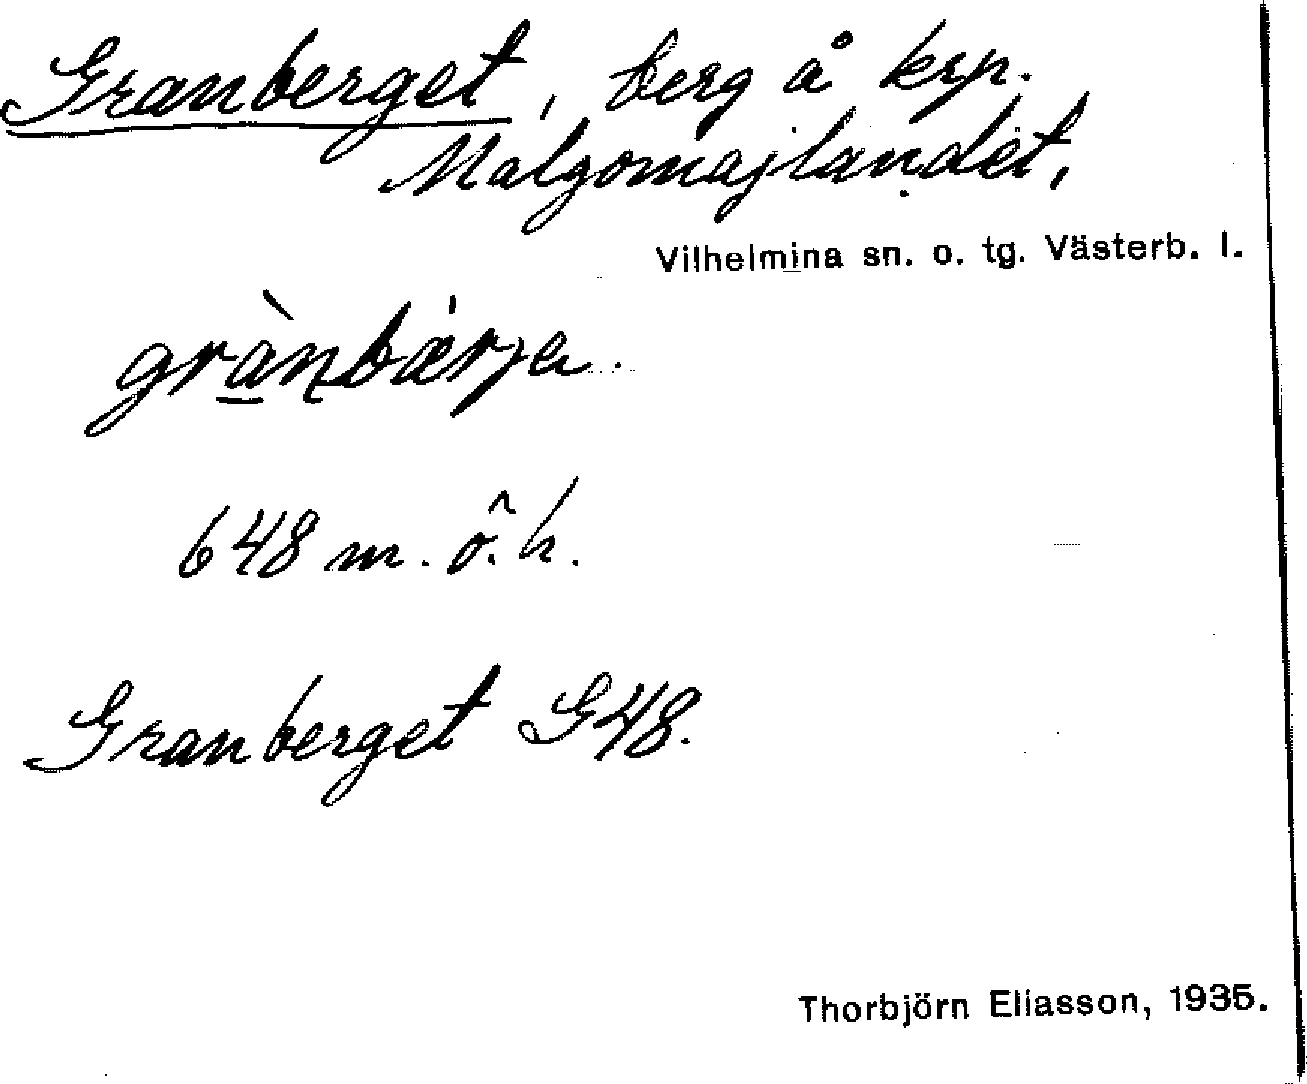 Granberget, berg å krp.
Malgomajlandet,
Vilhelmina sn. o. tg. Västerb. l.
grànbárja.
648 m. ö. h.
Granberget G48.
Thorbjörn Eliasson, 1935.